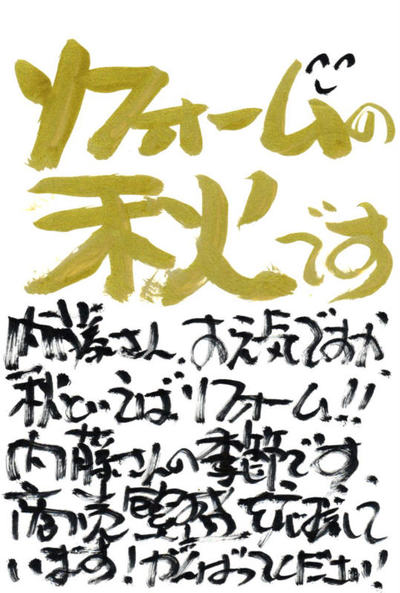 リフォームの
秋です
内藤さん、お元気ですか
秋といえばリフォーム!!
内藤さんの季節です。
商売繁盛応援して
います!がんばってください!